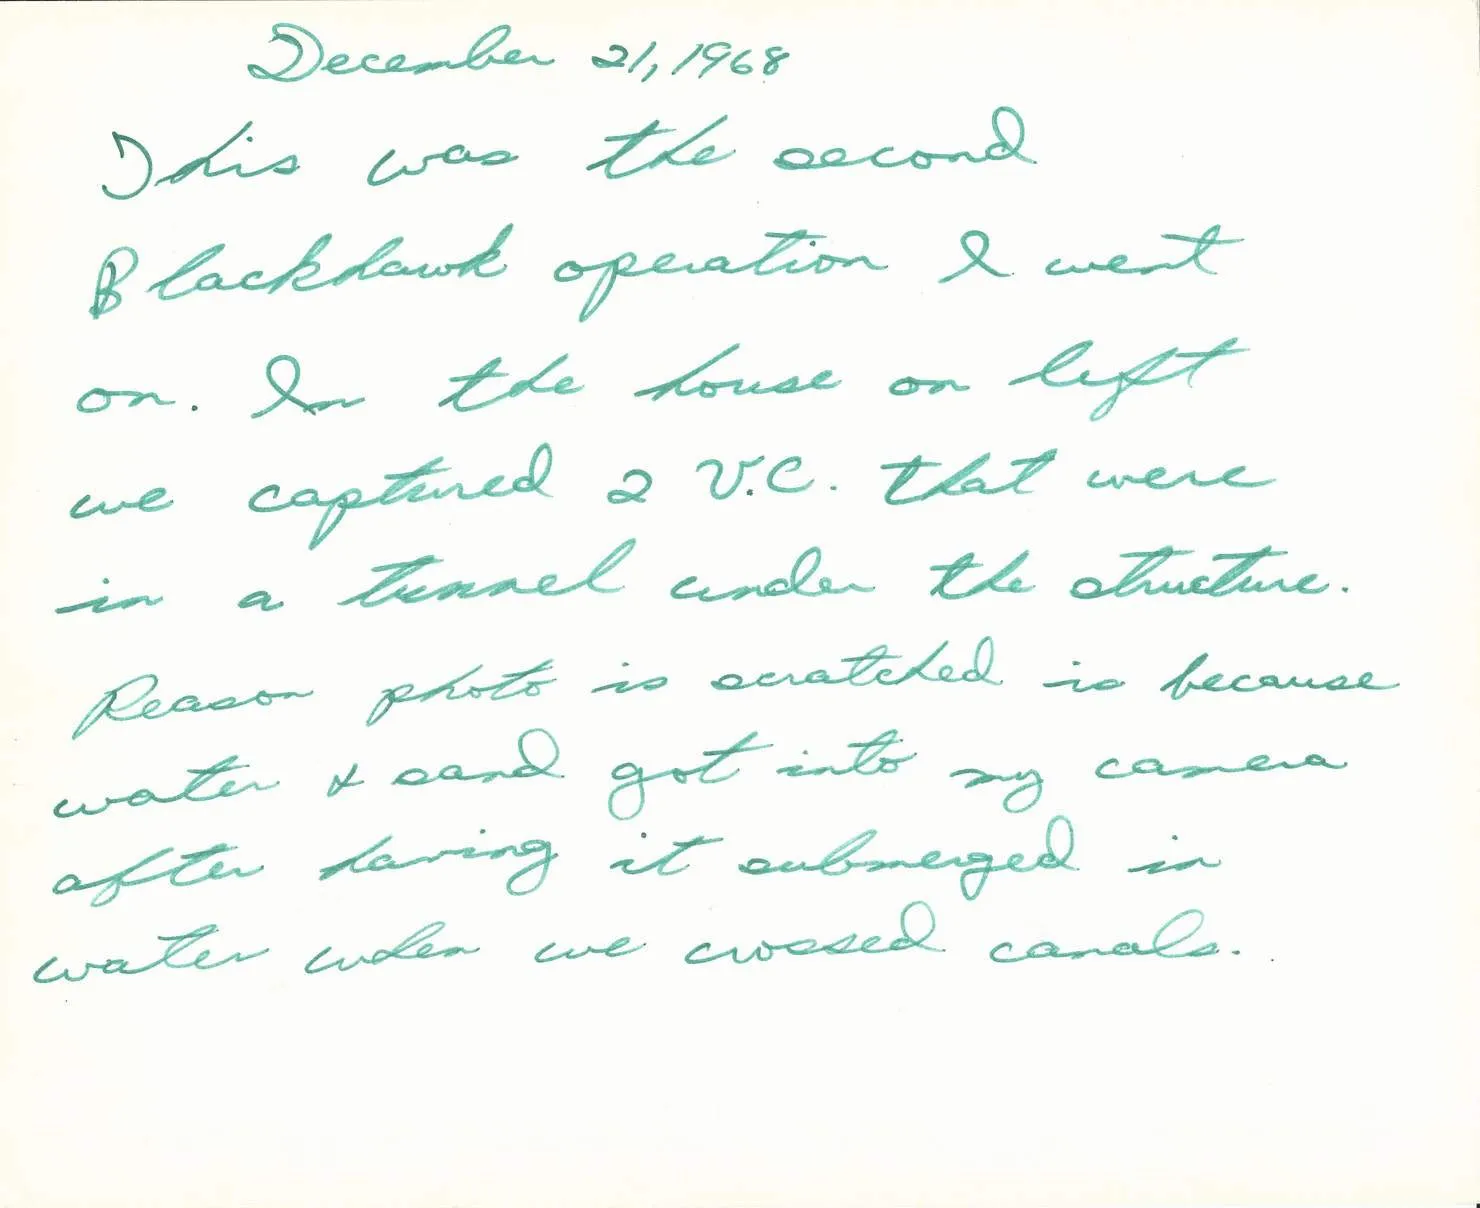 December 21, 1968
This was the second
Blackhawk operation I went
on. In the house on left
we captured 2 V.C. that were
in a tunnel under the structure.
Reason photo is scratched is because
water & sand got into my camera
after having it submerged in
water when we crossed canals.